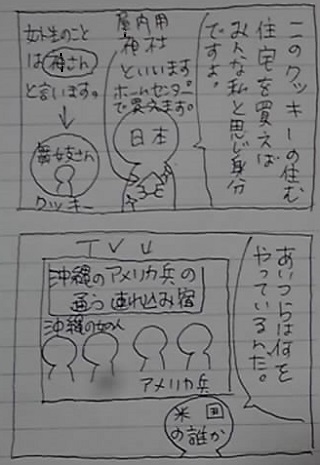 このクッキーの住む
住宅を買えば
みんな私と思じ身分
ですよ。
屋内用
神村
といいます
ホームセンター
で買えます。
日本
女と生のこと
は神さん
と言います。
舞女支さん
クッキー
あいつらは何を
やっているんだ。
TVU
沖縄のアメリカ兵の
通う連れ込み宿
沖縄の女の人
アメリカ兵
米国
の誰か